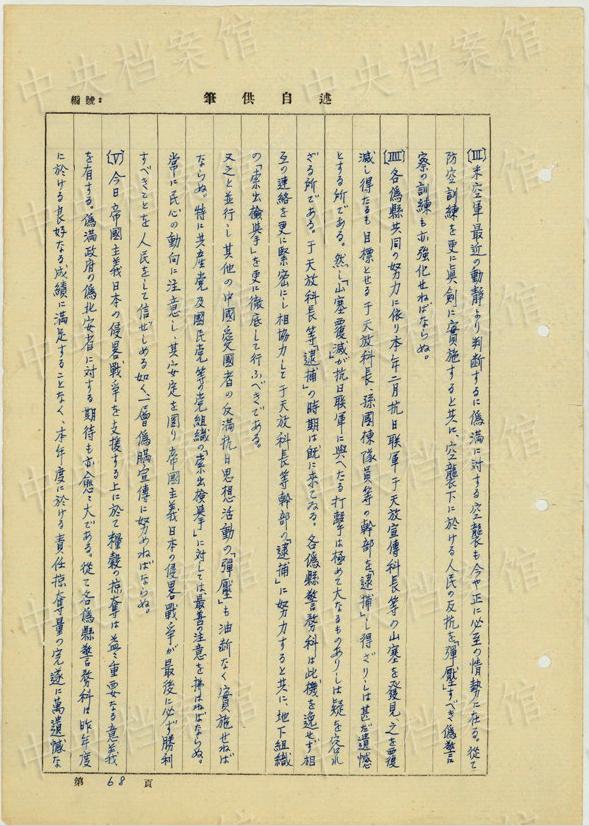 中央档案馆
編號：
筆供自述
(III) 米空軍最近の動静より判断するに偽満に対する空襲も今や正に必至の情勢に在る。従て
防空訓練を更に眞剣に実施すると共に、空襲下に於ける人民の反抗を「彈壓」すべき偽警
察の訓練も亦強化せねばならぬ。
(IIII) 各偽縣共同の努力に依り本年二月抗日联軍于天放宣傳科長等の山塞を發見之を覆
滅し得たるも目標とせる于天放科長、孫國棟隊員等の幹部を「逮捕」し得ざりしは甚だ遺憾
とする所である。然し「山塞覆滅」が抗日联軍に與へたる打撃は極めて大なるものありしは疑を容れ
ざる所である。于天放科長等「逮捕」の時期は既に来てゐる。各偽縣警務科は此機を逸せず相
互の連絡を更に緊密にし相協力して于天放科長等幹部の「逮捕」に努力すると共に、地下組織
の「索出検挙」を更に徹底して行ふべきである。
又之と並行し其他の中國愛國者の反満抗日思想活動の「彈壓」も油断なく實施せねば
ならぬ。特に共産党及國民党等の党組織の「索出検挙」に対しては最善の注意を拂はねばならぬ。
常に民心の動向に注意し、其安定を圖り帝國主義日本の侵畧戰争が最後に必ず勝利
すべきことを人民をして信ぜしめる如く、一層偽瞞宣傳に努めねばならぬ。
(V) 今日帝國主義日本の侵畧戰争を支援する上に於て糧穀の掠奪は益々重要なる意義
を有する。偽満政府の偽北安省に対する期待も亦愈々大である。従て各偽縣警務科は昨年度
に於ける良好なる成績に満足することなく、本年度に於ける責任掠奪量の完遂に萬遺憾な
第 68 頁